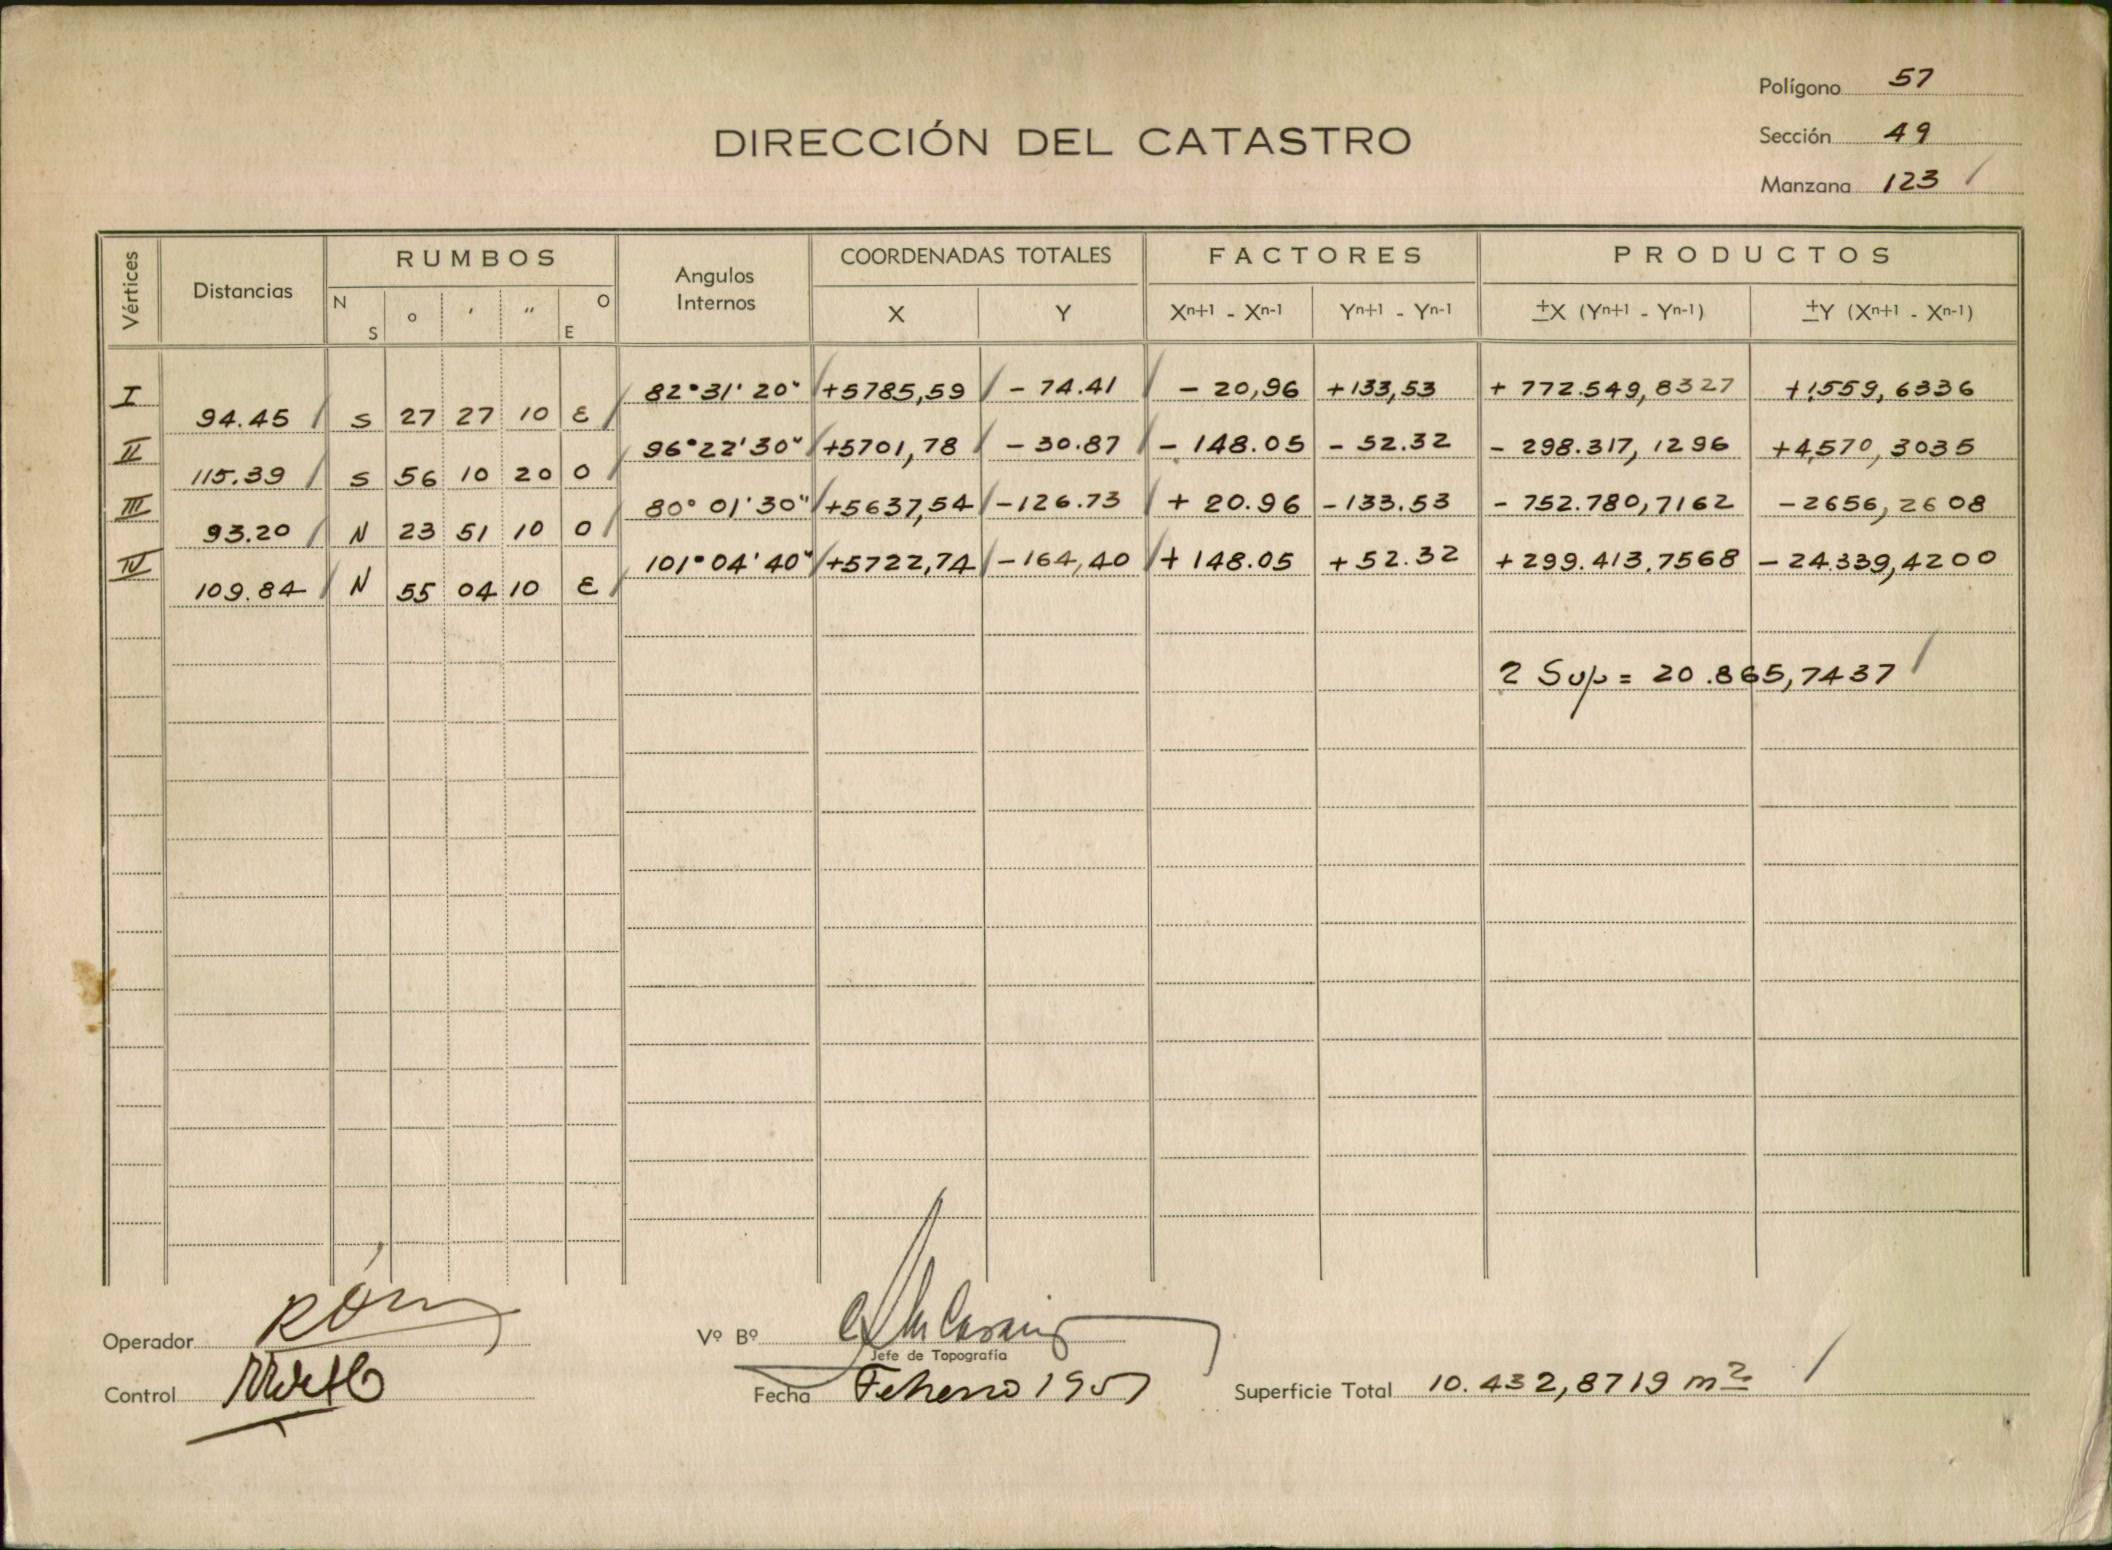 Polígono 57
DIRECCIÓN DEL CATASTRO
Sección 49
Manzana 123
Vértices Distancias RUMBOS Angulos Internos COORDENADAS TOTALES FACTORES PRODUCTOS
N S o ' " O E X Y Xn+1 - Xn-1 Yn+1 - Yn-1 ±X (Yn+1 - Yn-1) ±Y (Xn+1 - Xn-1)
I 82°31'20" +5785,59 - 74.41 - 20,96 +133,53 + 772.549,8327 +1559,6336
94.45 S 27 27 10 E
II 96°22'30" +5701,78 - 30.87 - 148.05 - 52.32 - 298.317,1296 +4570,3035
115.39 S 56 10 20 O
III 80°01'30" +5637,54 -126.73 + 20.96 -133.53 - 752.780,7162 -2656,2608
93.20 N 23 51 10 O
IV 101°04'40" +5722,74 -164,40 + 148.05 +52.32 +299.413.7568 -24.339,4200
109.84 N 55 04 10 E
2 Sup = 20.865,7437
Operador
Vº Bº
Jefe de Topografía
Control
Fecha Febrero 1957
Superficie Total 10.432,8719 m2